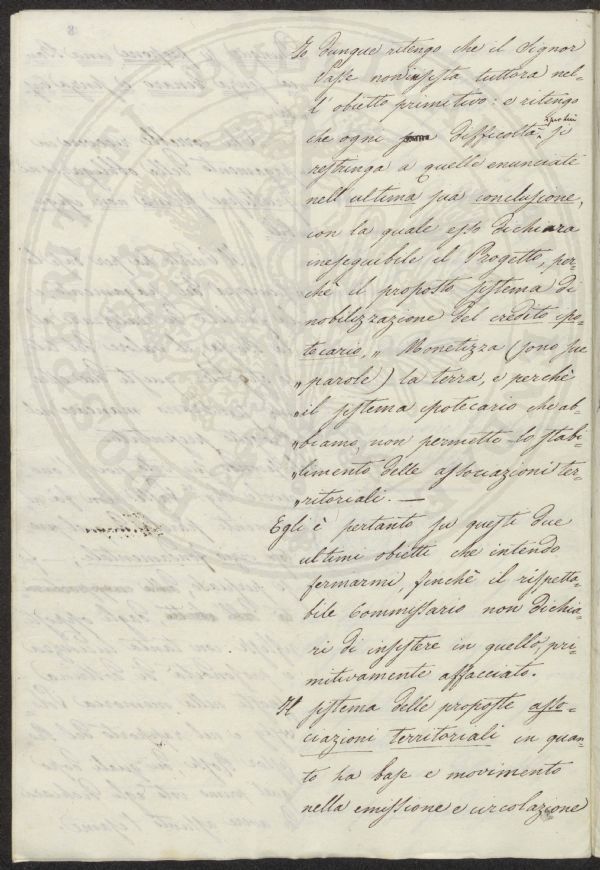 Io dunque ritengo che il Signor
Passe non insista tuttora nel-
l'obietto primitivo: e ritengo
che ogni difficoltà si
restringa a quelle enunciate
nell'ultima sua conclusione,
con la quale esso dichiara
ineseguibile il Progetto, per-
chè il proposto sistema di
mobilizzazione del credito ipo-
tecario, „ Monetizza (sono sue
„ parole) la terra, e perchè
„ il sistema ipotecario che ab-
„ biamo, non permette lo stabi-
„ limento delle associazioni ter-
„ ritoriali. —
Egli è pertanto su questi due
ultimi obietti che intendo
fermarmi, finchè il rispetta-
bile Commissario non dichia-
ri di insistere in quello, pri-
mitivamente affacciato.
Il sistema delle proposte asso-
ciazioni territoriali in quan-
to ha base e movimento
nella emissione e circolazione